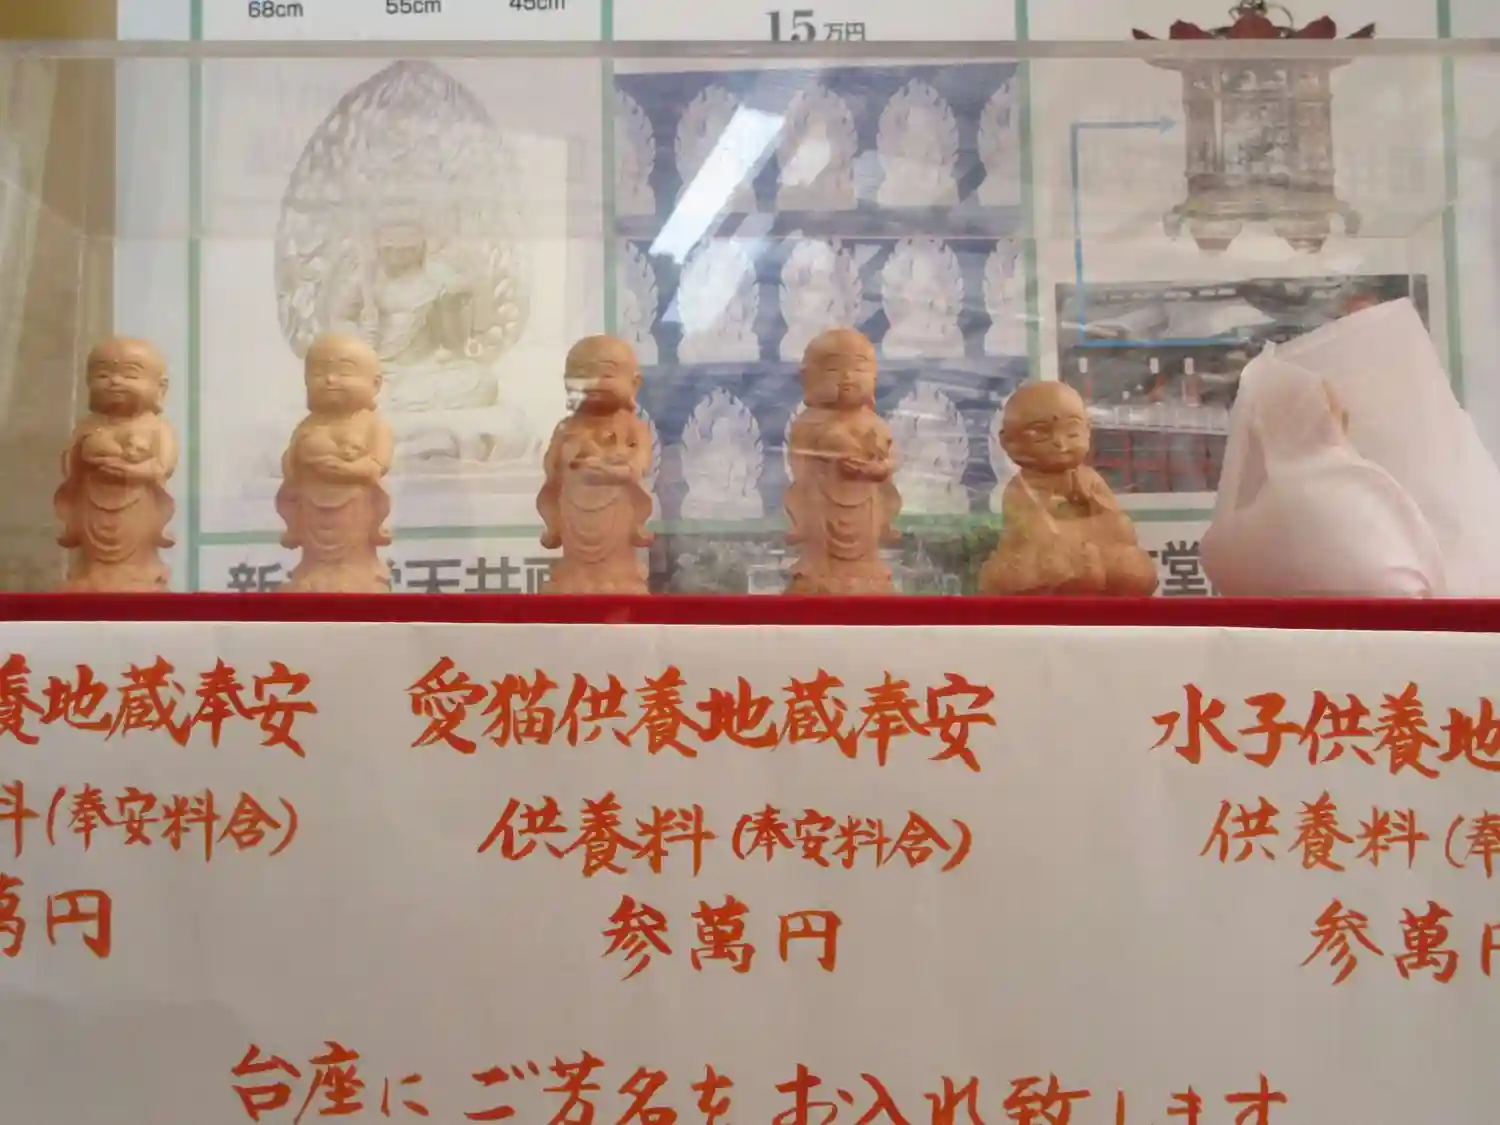 68cm 55cm 45cm
15万円
養地蔵奉安 愛猫供養地蔵奉安 水子供養地
料(奉安料含) 供養料(奉安料含) 供養料(奉
萬円 参萬円 参萬円
台座にご芳名をお入れ致します